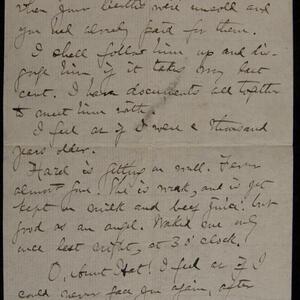 when your berths were unsold and
you had already paid for them.
I shall follow him up and dis-
gorge him if it takes my last
cent. I have documents all together
to meet him with.
I feel as if I were a thousand
years older.
Hazel is getting on well. Fever
almost gone. She is weak, and is yet
kept on milk and beef juice: but
good as an angel. Waked me only
once last night, at 3 o'clock.
O, Hat! I feel as if I
could never face you again, after